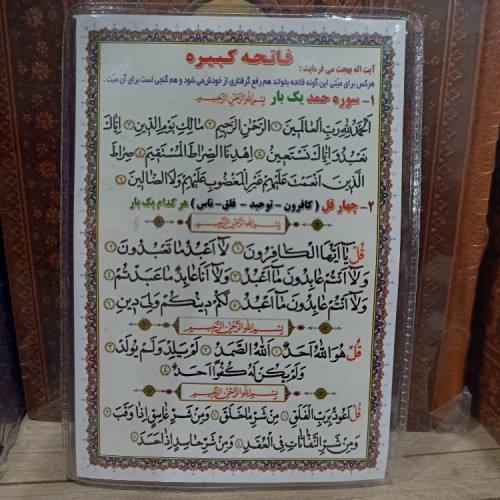 فاتحه کبیره
آیت اله بهجت می فرمایند :
هرکس برای میّتی این گونه فاتحه بخواند هم رفع گرفتاری از خودش می شود و هم گنجی است برای آن میّت .
۱- سوره حمد یک بار بِسْمِ اللهِ الرَّحْمٰنِ الرَّحِیمِ
اَلْحَمْدُ لِلّٰهِ رَبِّ الْعَالَمِینَ ﴿۱﴾ اَلرَّحْمٰنِ الرَّحِیمِ ﴿۲﴾ مَالِکِ یَوْمِ الدِّینِ ﴿۳﴾ اِیَّاکَ
نَعْبُدُ وَ اِیَّاکَ نَسْتَعِینُ ﴿۴﴾ اِهْدِنَا الصِّرَاطَ الْمُسْتَقِیمَ ﴿۵﴾ صِرَاطَ
الَّذِینَ اَنْعَمْتَ عَلَیْهِمْ غَیْرِ الْمَغْضُوبِ عَلَیْهِمْ وَلَا الضَّالِّینَ ﴿۶﴾
۲- چهار قل ( کافرون - توحید - فلق - ناس ) هر کدام یک بار
بِسْمِ اللهِ الرَّحْمٰنِ الرَّحِیمِ
قُلْ یَا اَیُّهَا الْکَافِرُونَ ﴿۱﴾ لَا اَعْبُدُ مَا تَعْبُدُونَ ﴿۲﴾
وَلَا اَنْتُمْ عَابِدُونَ مَا اَعْبُدُ ﴿۳﴾ وَلَا اَنَا عَابِدٌ مَا عَبَدْتُمْ ﴿۴﴾
وَلَا اَنْتُمْ عَابِدُونَ مَا اَعْبُدُ ﴿۵﴾ لَکُمْ دِینُکُمْ وَلِیَ دِینِ ﴿۶﴾
بِسْمِ اللهِ الرَّحْمٰنِ الرَّحِیمِ
قُلْ هُوَ اللهُ اَحَدٌ ﴿۱﴾ اَللهُ الصَّمَدُ ﴿۲﴾ لَمْ یَلِدْ وَلَمْ یُولَدْ ﴿۳﴾
وَلَمْ یَکُنْ لَهُ کُفُوًا اَحَدٌ ﴿۴﴾
بِسْمِ اللهِ الرَّحْمٰنِ الرَّحِیمِ
قُلْ اَعُوذُ بِرَبِّ الْفَلَقِ ﴿۱﴾ مِنْ شَرِّ مَا خَلَقَ ﴿۲﴾ وَمِنْ شَرِّ غَاسِقٍ اِذَا وَقَبَ ﴿۳﴾
وَمِنْ شَرِّ النَّفَّاثَاتِ فِی الْعُقَدِ ﴿۴﴾ وَمِنْ شَرِّ حَاسِدٍ اِذَا حَسَدَ ﴿۵﴾